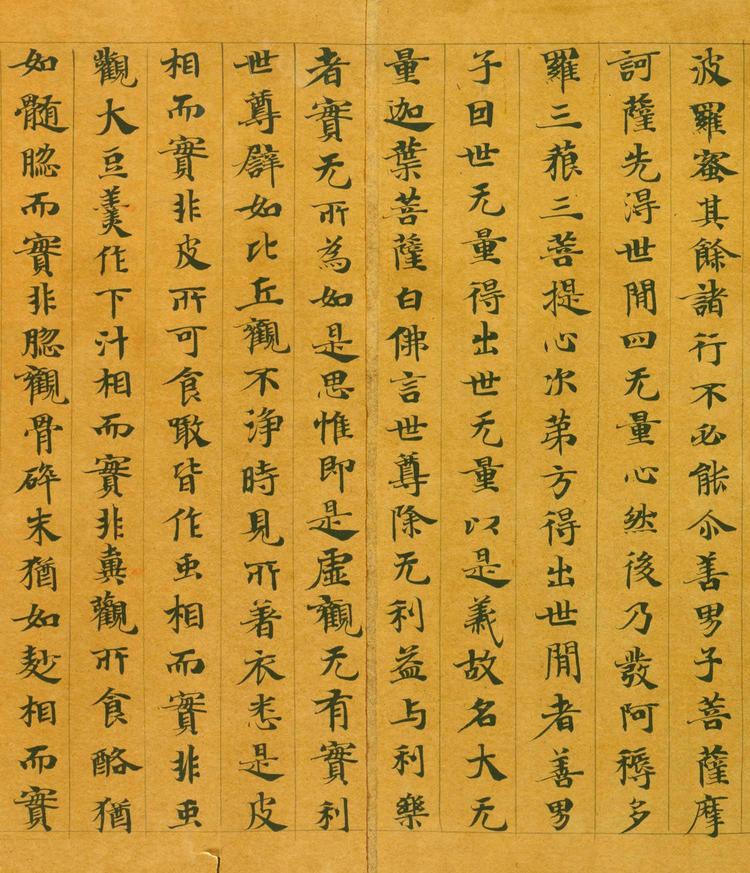 波羅蜜其餘諸行不必能尒善男子菩薩摩
訶薩先淂世間四无量心然後乃發阿耨多
羅三藐三菩提心次苐方得出世間者善男
子曰世无量得出世无量以是義故名大无
量迦葉菩薩白佛言世尊除无利益与利樂
者實无所為如是思惟即是虛觀无有實利
世尊譬如比丘觀不淨時見所著衣悉是皮
相而實非皮所可食噉皆作虫相而實非虫
觀大豆羹作下汁相而實非糞觀所食酪猶
如髓𦠆而實非𦠆觀骨碎末猶如麨相而實